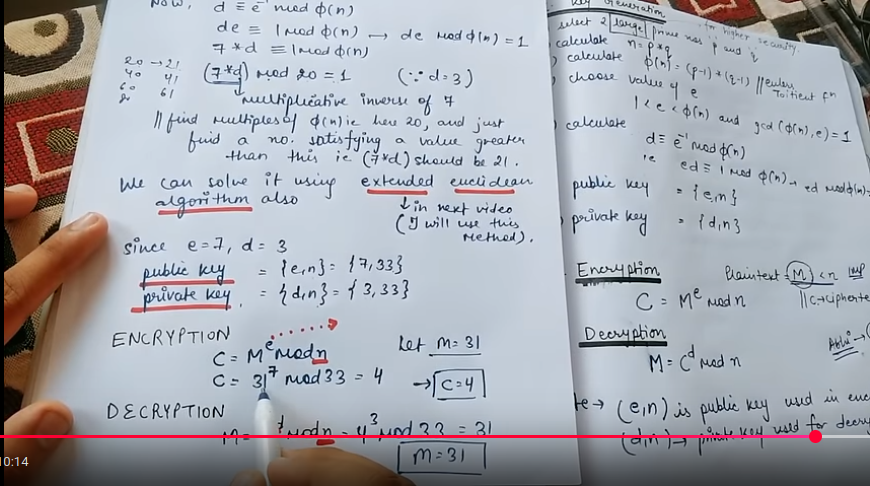 Now, d ≡ e⁻¹ mod ϕ(n)
de ≡ 1 mod ϕ(n) → de mod ϕ(n) = 1
7 * d ≡ 1 mod ϕ(n)
20 → 21
40 41
60 61
80
(7*d) mod 20 = 1 (∵ d = 3)
↳ multiplicative inverse of 7
// find multiples of ϕ(n) ie here 20, and just
find a no. satisfying a value greater
than this ie (7*d) should be 21.
We can solve it using extended euclidean
algorithm also
↳ in next video
(I will use this
method).
since e = 7, d = 3
public key = {e,n} = {7,33}
private key = {d,n} = {3,33}
ENCRYPTION
C = Mᵉ mod n
Let M = 31
C = 31⁷ mod 33 = 4 → C = 4
DECRYPTION
mod n = 4³ mod 33 = 31
M = 31
Key Generation
select 2 large prime nos p and q
for higher security
calculate n = p * q
calculate ϕ(n) = (p-1) * (q-1) // eulers
Toitient fn
choose value of e
1 < e < ϕ(n) and gcd (ϕ(n), e) = 1
calculate
d ≡ e⁻¹ mod ϕ(n)
ie ed ≡ 1 mod ϕ(n) → ed mod ϕ(n)
public key = {e,n}
private key = {d,n}
Encryption
Plaintext = M < n imp
C = Mᵉ mod n
Decryption
M = Cᵈ mod n
te → (e,n) is public key used in
(d,n) → private key used for
10:14